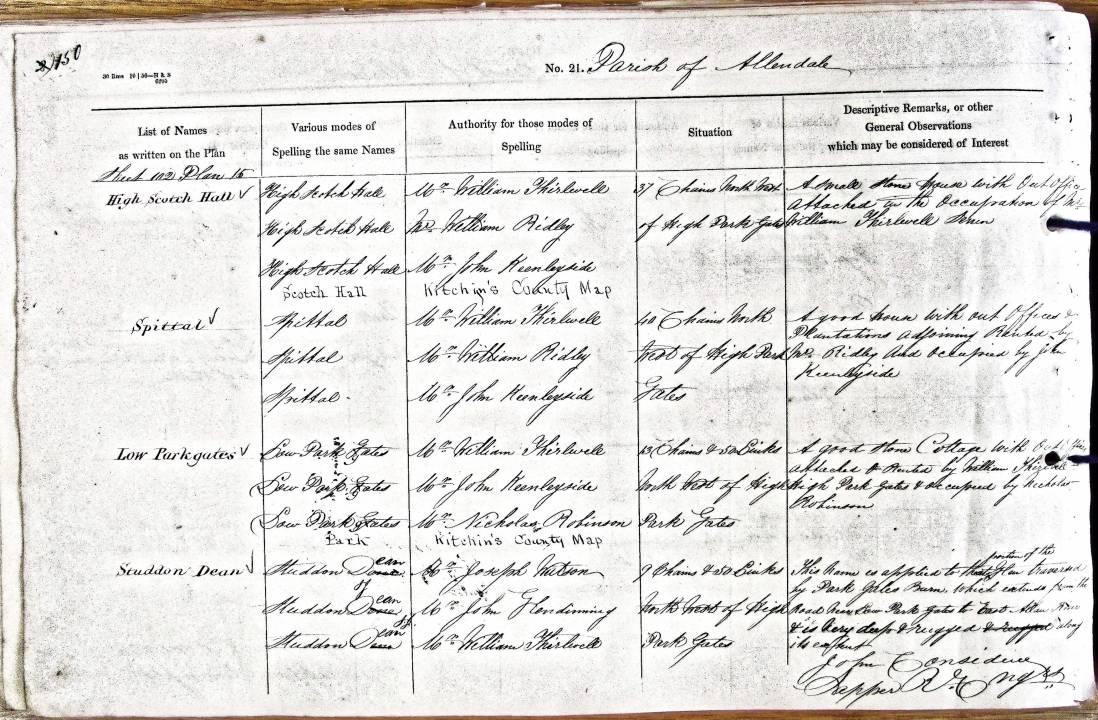 2/150
30 lines 10 | 56—H & S
6210
No. 21. Parish of Allendale
List of Names
as written on the Plan
Various modes of
Spelling the same Names
Authority for those modes of
Spelling
Situation
Descriptive Remarks, or other
General Observations
which may be considered of Interest
Sheet 102 Plan 15
High Scotch Hall
High Scotch Hall
High Scotch Hall
High Scotch Hall
Scotch Hall
Mr. William Thirlwell
Mr. William Ridley
Mr. John Keenleyside
Kitchin's County Map
37 Chains North West
of High Park Gates
A small stone house with Out Offices
attached in the Occupation of Mr.
William Thirlwell Senr.
Spittal
Spittal
Spittal
Spittal
Mr. William Thirlwell
Mr. William Ridly
Mr. John Keenleyside
40 Chains North
West of High Park
Gates
A good house with out Offices &
Plantations adjoining Rented by
Mr. Ridley and Occupied by John
Keenleyside
Low Parkgates
Low Park Gates
Low Park Gates
Low Park Gates
Park
Mr. William Thirlwell
Mr. John Keenleyside
Mr. Nicholas Robinson
Kitchin's County Map
13 Chains & 50 Links
North West of High
Park Gates
A good stone Cottage with Out
attached & Rented by William Thirlwell
High Park Gates & occupied by Nicholas
Robinson
Studdon Dean
Studdon Dean
Studdon Dean
Studdon Dean
Mr. Joseph Watson
Mr. John Glendinning
Mr. William Thirlwell
9 Chains & 50 Links
North West of High
Park Gates
This name is applied to that portion of the Glen traversed
by Park Gates Burn, which extends from the
Road near Low Park Gates to East Allen River
& is very deep & rugged & rugged along
its extent
John Considine
Sapper Rl. Engrs